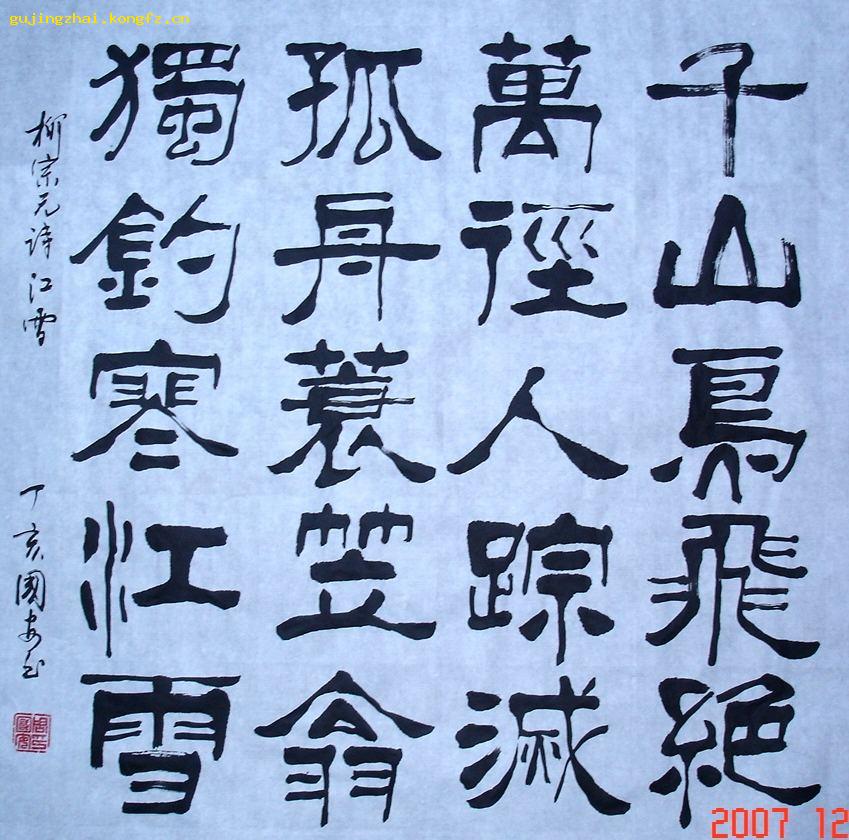 gujingzhai.kongfz.cn
千山鳥飛絕
萬徑人踪滅
孤舟蓑笠翁
獨釣寒江雪
柳宗元诗江雪
丁亥國安书
2007 12